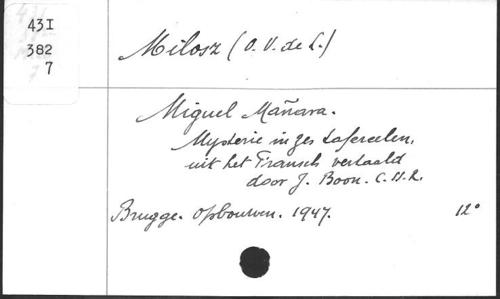 43I
382
7
Milosz (O. V. de L.)
Miguel Mañara.
Mysterie in zes tafereelen,
uit het Fransch vertaald
door J. Boon. C.ss.R.
Brugge. Opbouwen. 1947. 12°